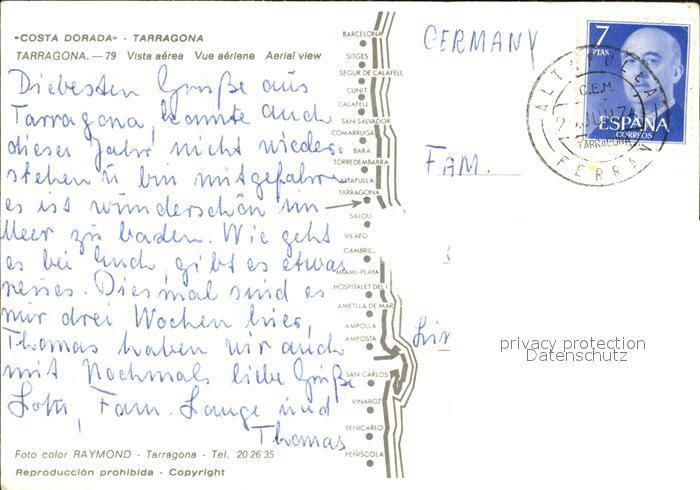 «COSTA DORADA» - TARRAGONA
TARRAGONA. — 79 Vista aérea Vue aériene Aerial view
Liebesten Grüße aus
Tarragona, konnte auch
dieses Jahr nicht wieder-
stehen u bin mitgefahren
es ist wunderschön im
Meer zu baden. Wie geht
es bei Euch, gibt es etwas
neues. Diesmal sind es
nur drei Wochen hier,
Thomas haben wir auch
mit Nochmals liebe Grüße
Fam. Lange und
Thomas
Foto color RAYMOND - Tarragona - Tel. 20 26 35
Reproducción prohibida - Copyright
BARCELONA
SITGES
SEGUR DE CALAFELL
CUNIT
CALAFELL
SAN SALVADOR
COMARRUGA
BARA
TORREDEMBARRA
ALTAFULLA
TARRAGONA
SALOU
VILAFO
CAMBRIL
MIAMI-PLAYA
HOSPITALET DEL I.
AMETLLA DE MAR
AMPOLLA
AMPOSTA
SAN CARLOS
VINAROZ
BENICARLO
PEÑISCOLA
GERMANY
FAM.
7
PTAS
ESPAÑA
CORREOS
ALTAFULLA
C.E.M.
TARRAGONA
FERRAN
privacy protection
Datenschutz